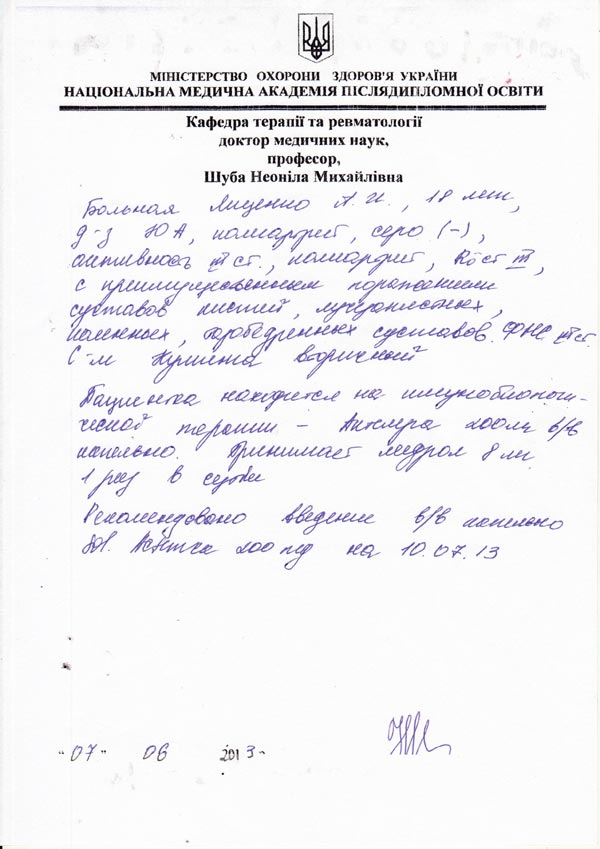 МІНІСТЕРСТВО ОХОРОНИ ЗДОРОВ'Я УКРАЇНИ
НАЦІОНАЛЬНА МЕДИЧНА АКАДЕМІЯ ПІСЛЯДИПЛОМНОЇ ОСВІТИ
Кафедра терапії та ревматології
доктор медичних наук,
професор,
Шуба Неоніла Михайлівна
Больная Лищенко А. И., 18 лет,
д-з ЮА, полиартрит, серо (-),
активность III ст., полиартрит, Rö ст III,
с преимущественным поражением
суставов кистей, лучезапястных,
коленных, тазобедренных суставов. ФНС III ст.
С-м Кушинга вторичный
Пациентка находится на имунобиологи-
ческой терапии – Актемра 200 в/в
капельно. Принимает медрол 8 мг
1 раз в сутки
Рекомендовано введение в/в капельно
200 на 10.07.13
"07" 06 2013